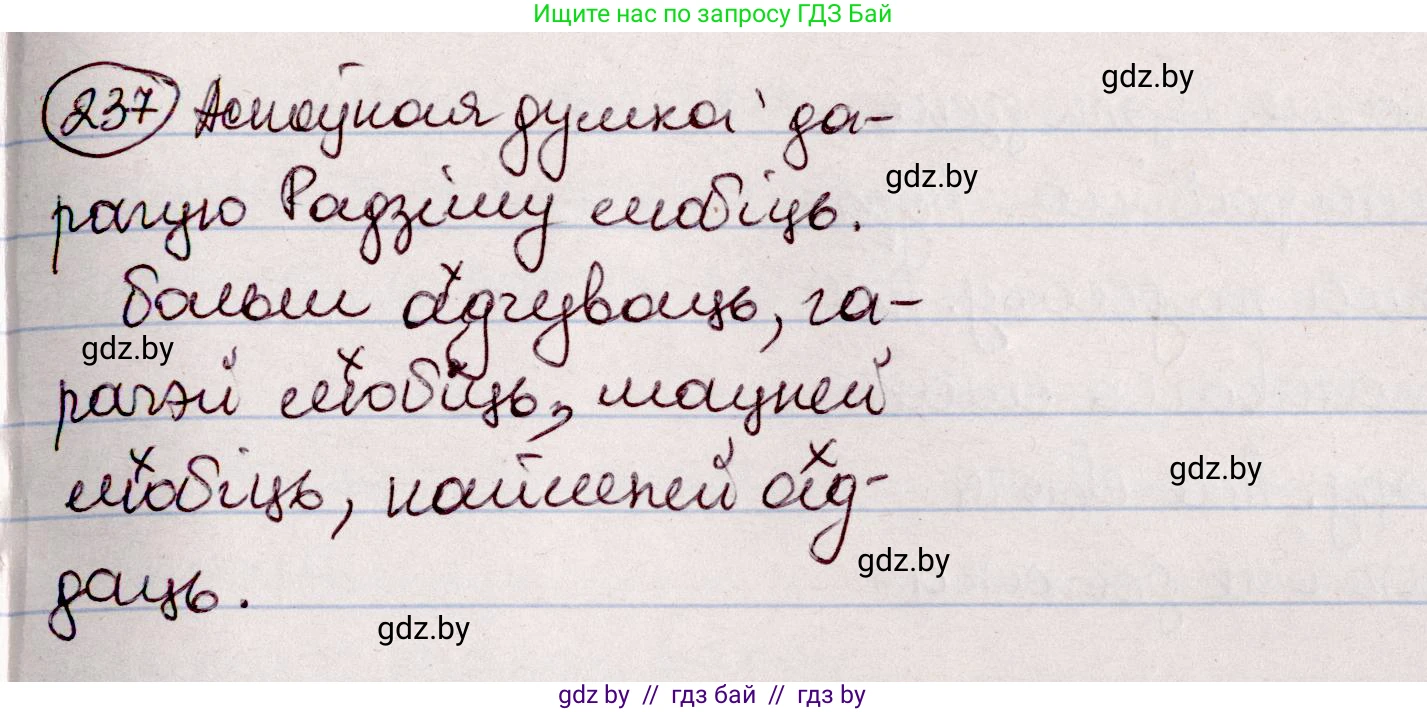 Ищите нас по запросу ГДЗ Бай
gdz.by
237 Асноўная думка: да-
gdz.by
рагую Радзіму любіць.
больш адчуваць, га-
gdz.by
рачэй любіць, мацней
любіць, найменей ад-
gdz.by
gdz.by
даць.
gdz.by
gdz.by // гдз бай // гдз by